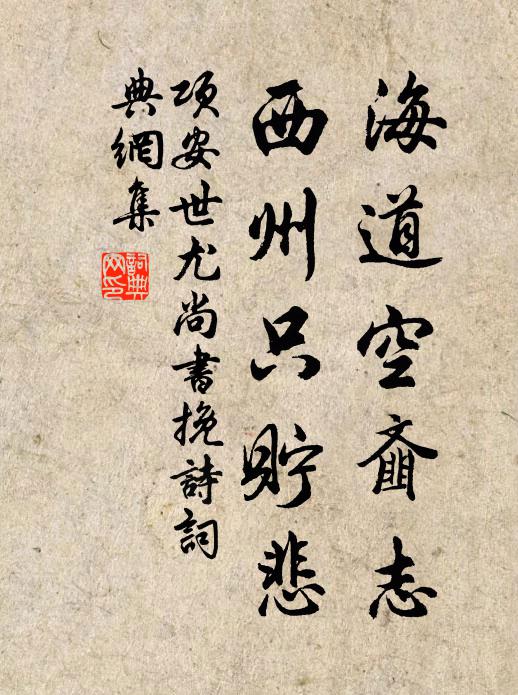 海道空齎志
西州只貯悲
項安世尤尚書挽詩詞
典網集
詞典网印